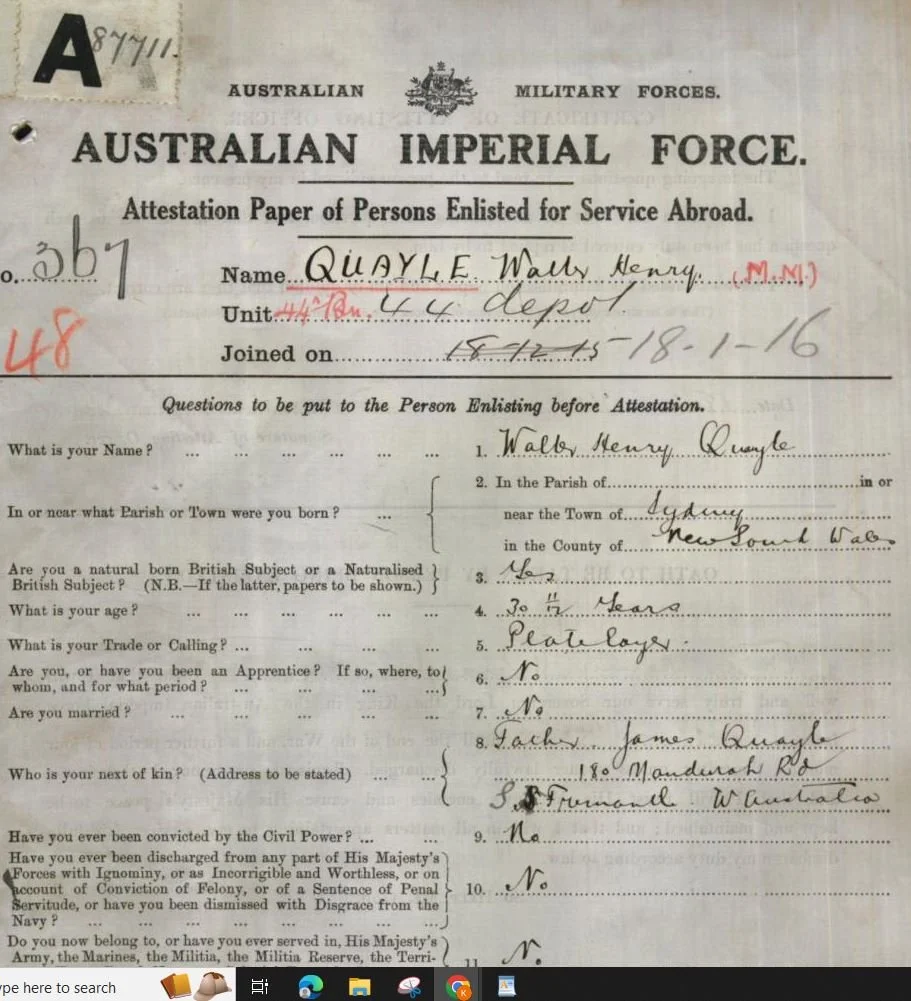 A 87711.
AUSTRALIAN MILITARY FORCES.
AUSTRALIAN IMPERIAL FORCE.
Attestation Paper of Persons Enlisted for Service Abroad.
o. 367 Name QUAYLE Walter Henry. (M.M.)
Unit 44th Bn. 44 depot.
48
Joined on 18-12-15 18-1-16
Questions to be put to the Person Enlisting before Attestation.
What is your Name? ... ... ... ... ... ... 1. Walter Henry Quayle
2. In the Parish of in or
In or near what Parish or Town were you born? ... near the Town of Sydney
in the County of New South Wales
Are you a natural born British Subject or a Naturalised
British Subject? (N.B.—If the latter, papers to be shown.) 3. Yes
What is your age? ... ... ... ... ... ... 4. 30 11/12 Years
What is your Trade or Calling? ... ... ... ... 5. Platelayer.
Are you, or have you been an Apprentice? If so, where, to
whom, and for what period? ... ... ... ... 6. No
Are you married? ... ... ... ... ... 7. No
8. Father. James Quayle
Who is your next of kin? (Address to be stated) ... ... 180 Mandurah Rd
S. Fremantle W Australia
Have you ever been convicted by the Civil Power? ... ... 9. No
Have you ever been discharged from any part of His Majesty's
Forces with Ignominy, or as Incorrigible and Worthless, or on
account of Conviction of Felony, or of a Sentence of Penal 10. No
Servitude, or have you been dismissed with Disgrace from the
Navy? ... ... ... ... ... ... ...
Do you now belong to, or have you ever served in, His Majesty's
Army, the Marines, the Militia, the Militia Reserve, the Terri- 11 No
ype here to search